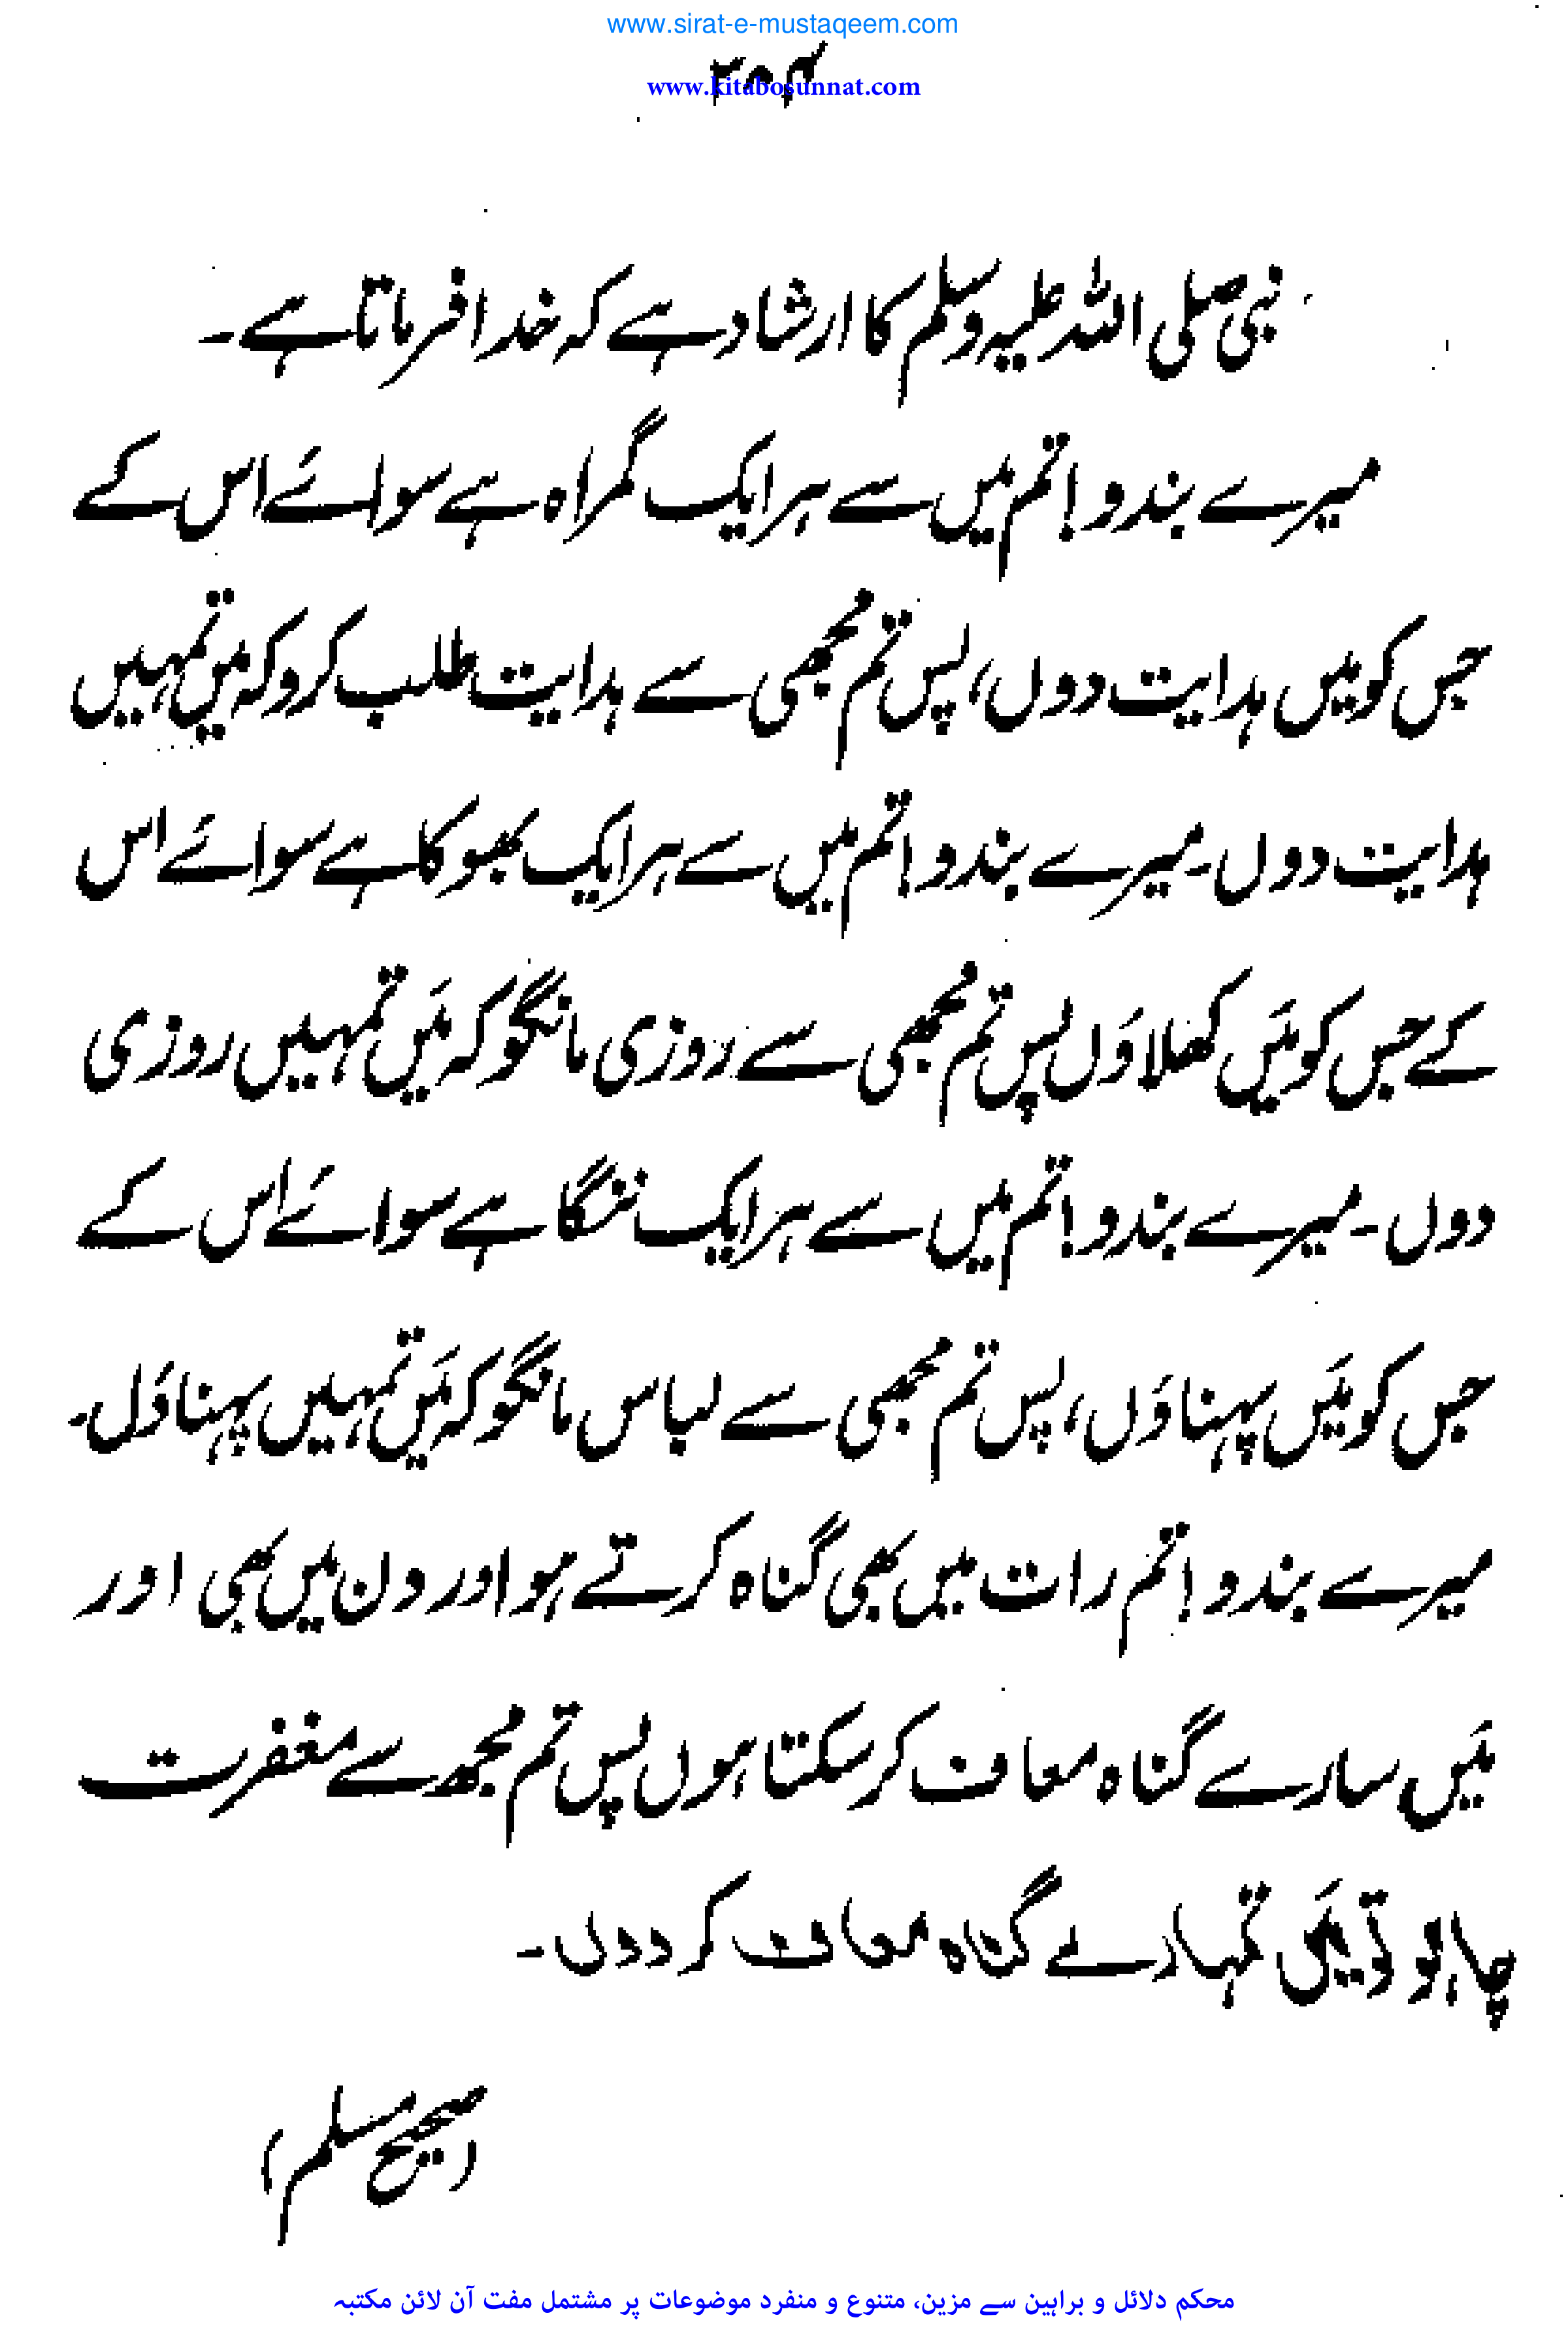 www.sirat-e-mustaqeem.com
www.kitabosunnat.com
نبی صلی اللہ علیہ وسلم کا ارشاد ہے کہ خدا فرماتا ہے۔
میرے بندو! تم میں سے ہر ایک گمراہ ہے سوائے اس کے
جس کو میں ہدایت دوں، پس تم مجھی سے ہدایت طلب کرو کہ میں تمہیں
ہدایت دوں۔ میرے بندو! تم میں سے ہر ایک بھوکا ہے سوائے اس
کے جس کو مَیں کھلاؤں پس تم مجھی سے روزی مانگو کہ مَیں تمہیں روزی
دوں۔ میرے بندو! تم میں سے ہر ایک ننگا ہے سوائے اس کے
جس کو مَیں پہناؤں، پس تم مجھی سے لباس مانگو کہ مَیں تمہیں پہناؤں۔
میرے بندو! تم رات میں بھی گناہ کرتے ہو اور دن میں بھی اور
مَیں سارے گناہ معاف کر سکتا ہوں پس تم مجھ سے مغفرت
چاہو تو مَیں تمہارے گناہ معاف کر دوں۔
(صحیح مسلم)
محکم دلائل و براہین سے مزین، متنوع و منفرد موضوعات پر مشتمل مفت آن لائن مکتبہ